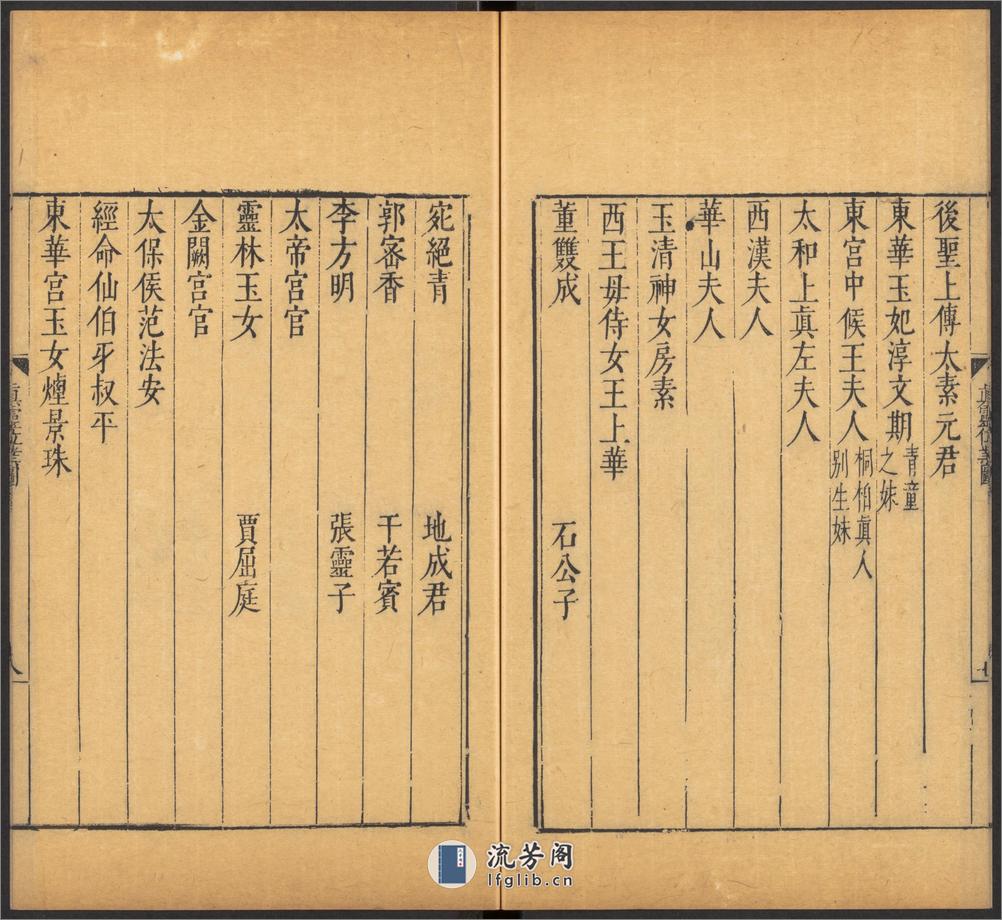 後聖上傳太素元君
東華玉妃淳文期青童之妹
東宮中候王夫人桐柏眞人別生妹
太和上眞左夫人
西漢夫人
華山夫人
玉清神女房素
西王母侍女王上華
董雙成 石公子
宛絕青 地成君
郭密香 干若賓
李方明 張靈子
太帝宮官
靈林玉女 賈屈庭
金闕宮官
太保侯范法安
經命仙伯牙叔平
東華宮玉女煙景珠
八
流芳阁
lfglib.cn